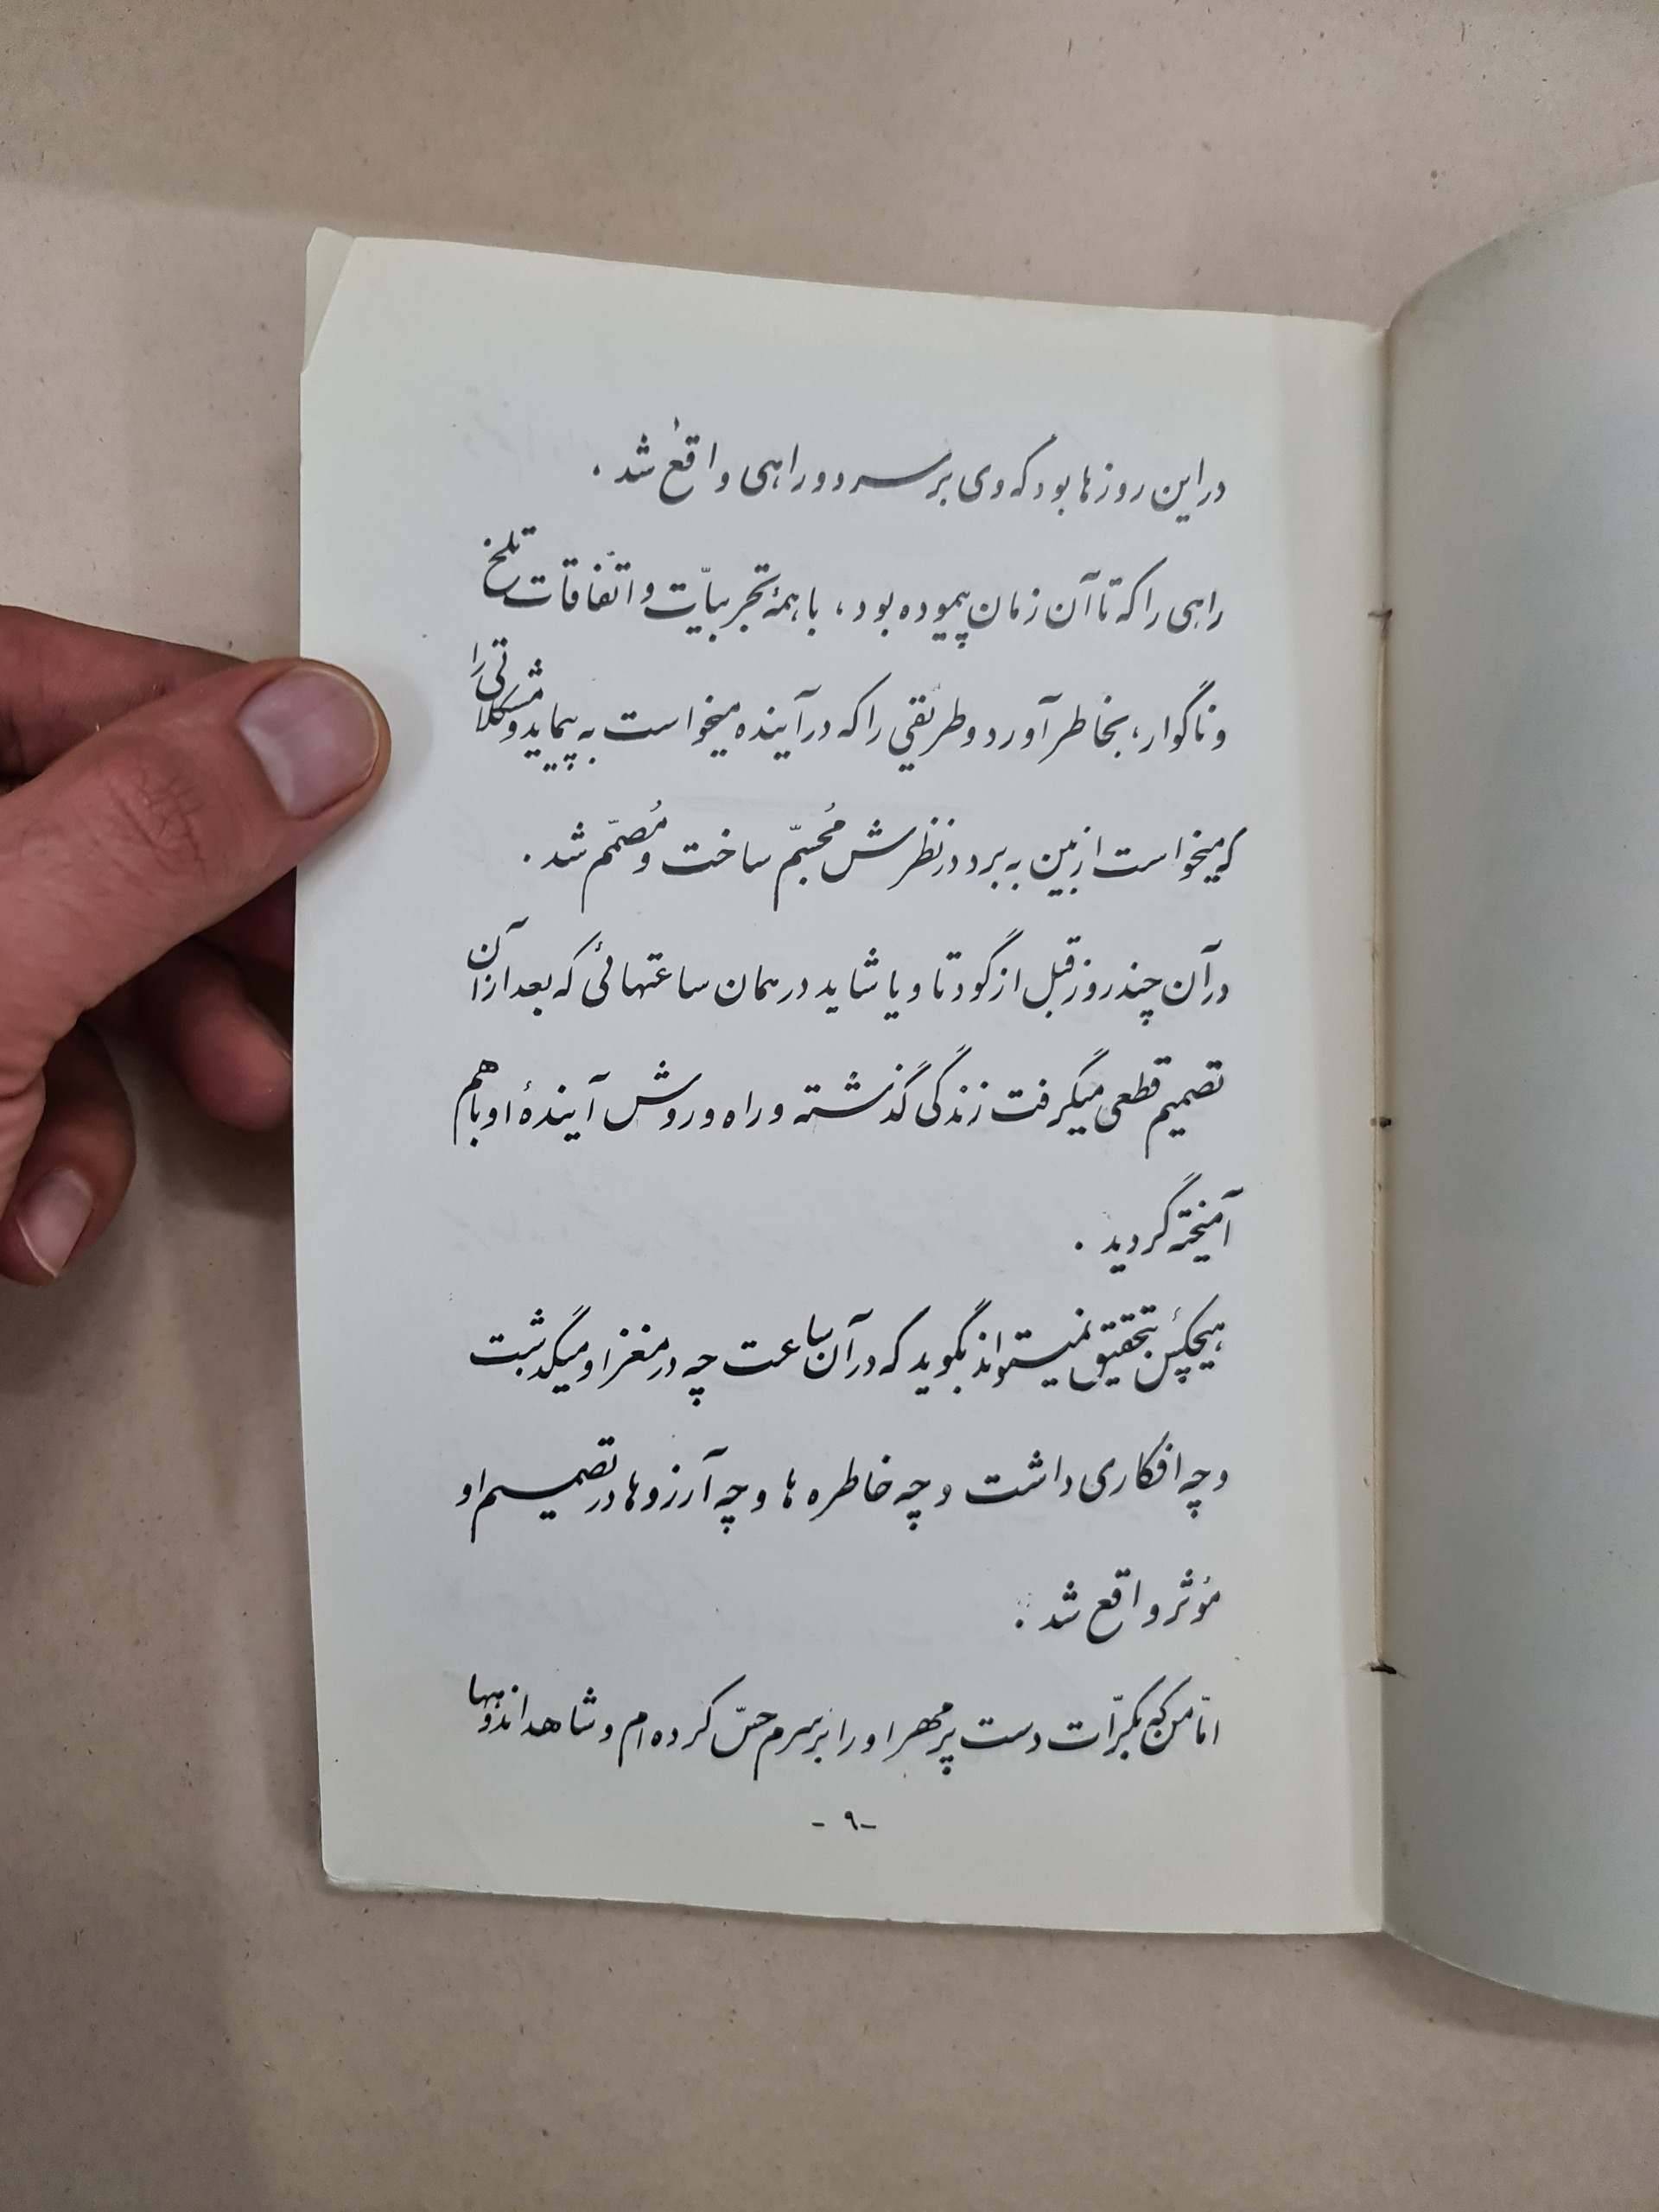 در این روزها بود که وی بر سر دو راهی واقع شد .
راهی را که تا آن زمان پیموده بود ، با همهٔ تجربیّات و اتّفاقات تلخ
و ناگوار ، بخاطر آورد و طریقی را که در آینده میخواست به پیماید و مشکلاتی را
که میخواست از بین به برد در نظرش مُجسّم ساخت و مُصمّم شد .
در آن چند روز قبل از کودتا و یا شاید در همان ساعتهائی که بعد از آن
تصمیم قطعی میگرفت زندگی گذشته و راه و روش آیندهٔ او با هم
آمیخته گردید .
هیچکس بتحقیق نمیتواند بگوید که در آن ساعت چه در مغز او میگذشت
و چه افکاری داشت و چه خاطره ها و چه آرزوها در تصمیم او
مُؤثر واقع شد .
امّا من که بکرّات دست پر مهر او را بر سرم حسّ کرده ام و شاهد اندوهها
- ۹ -